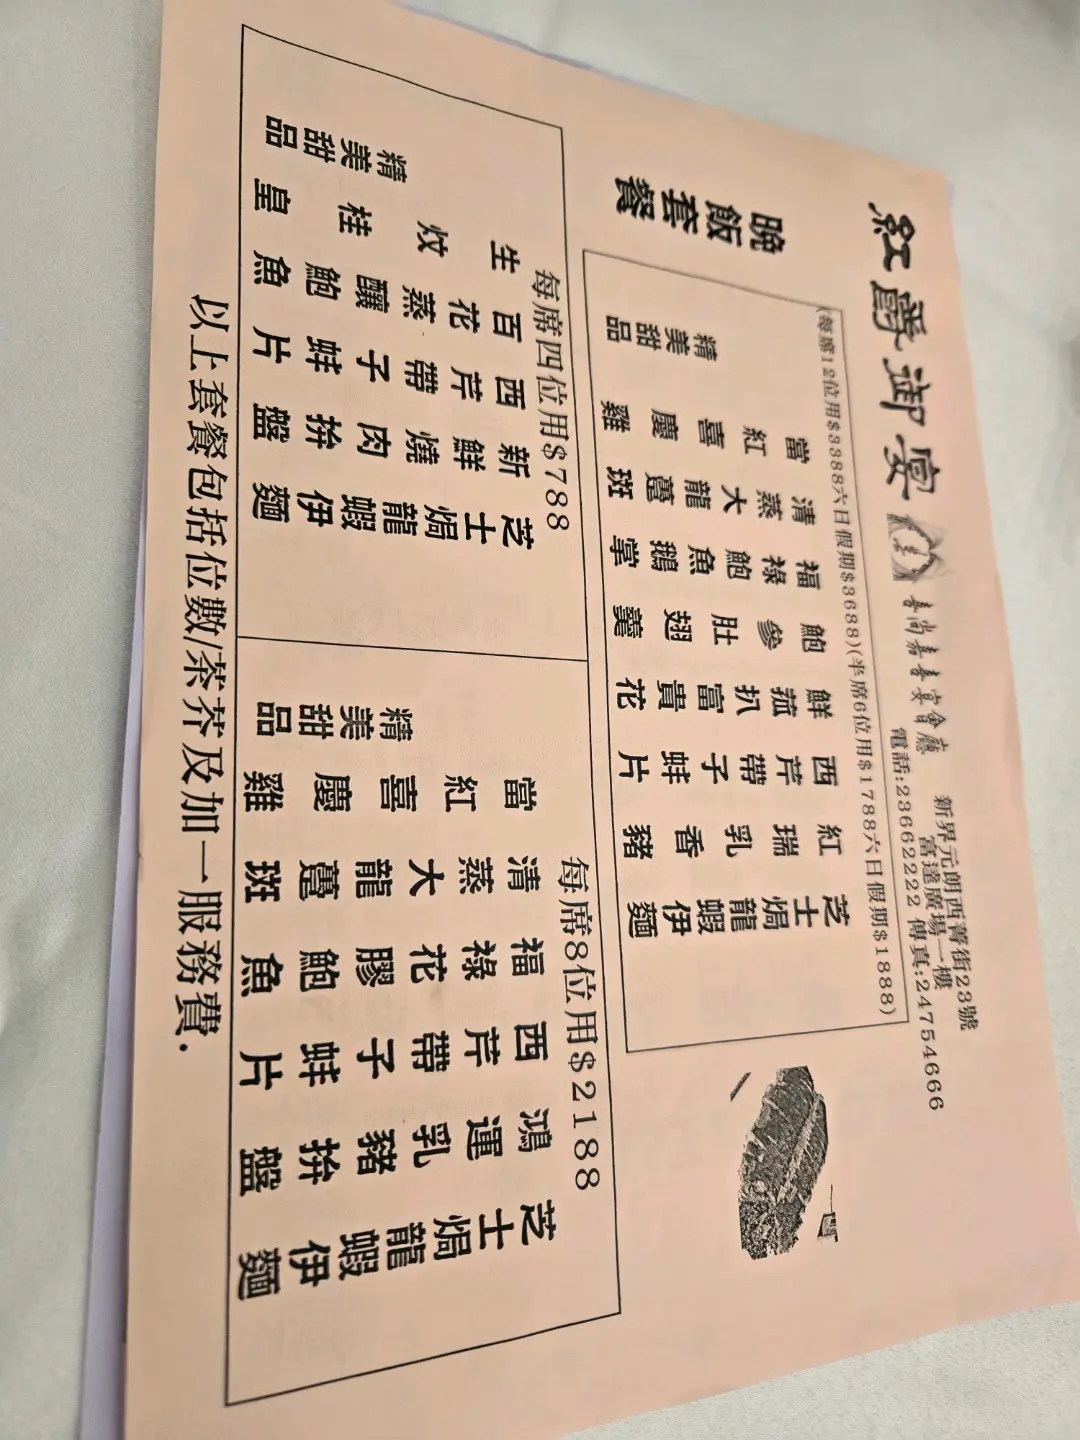 紅爵御宴
喜尚嘉喜宴會廳
新界元朗西菁街23號
富達廣場一樓
電話:23662222 傳真:24754666
晚飯套餐
(每席12位用$3388六日假期$3688)(半席6位用$1788六日假期$1888)
芝士焗龍蝦伊麵
紅瑞乳香豬
西芹帶子蚌片
鮮菰扒富貴花
鮑參肚翅羹
福祿鮑魚鵝掌
清蒸大龍躉斑
當紅喜慶雞
精美甜品
每席四位用$788
芝士焗龍蝦伊麵
新鮮燒肉拚盤
西芹帶子蚌片
百花蒸釀鮑魚
生炆桂皇
精美甜品
每席8位用$2188
芝士焗龍蝦伊麵
鴻運乳豬拚盤
西芹帶子蚌片
福祿花膠鮑魚
清蒸大龍躉斑
當紅喜慶雞
精美甜品
以上套餐包括位數/茶芥及加一服務費.